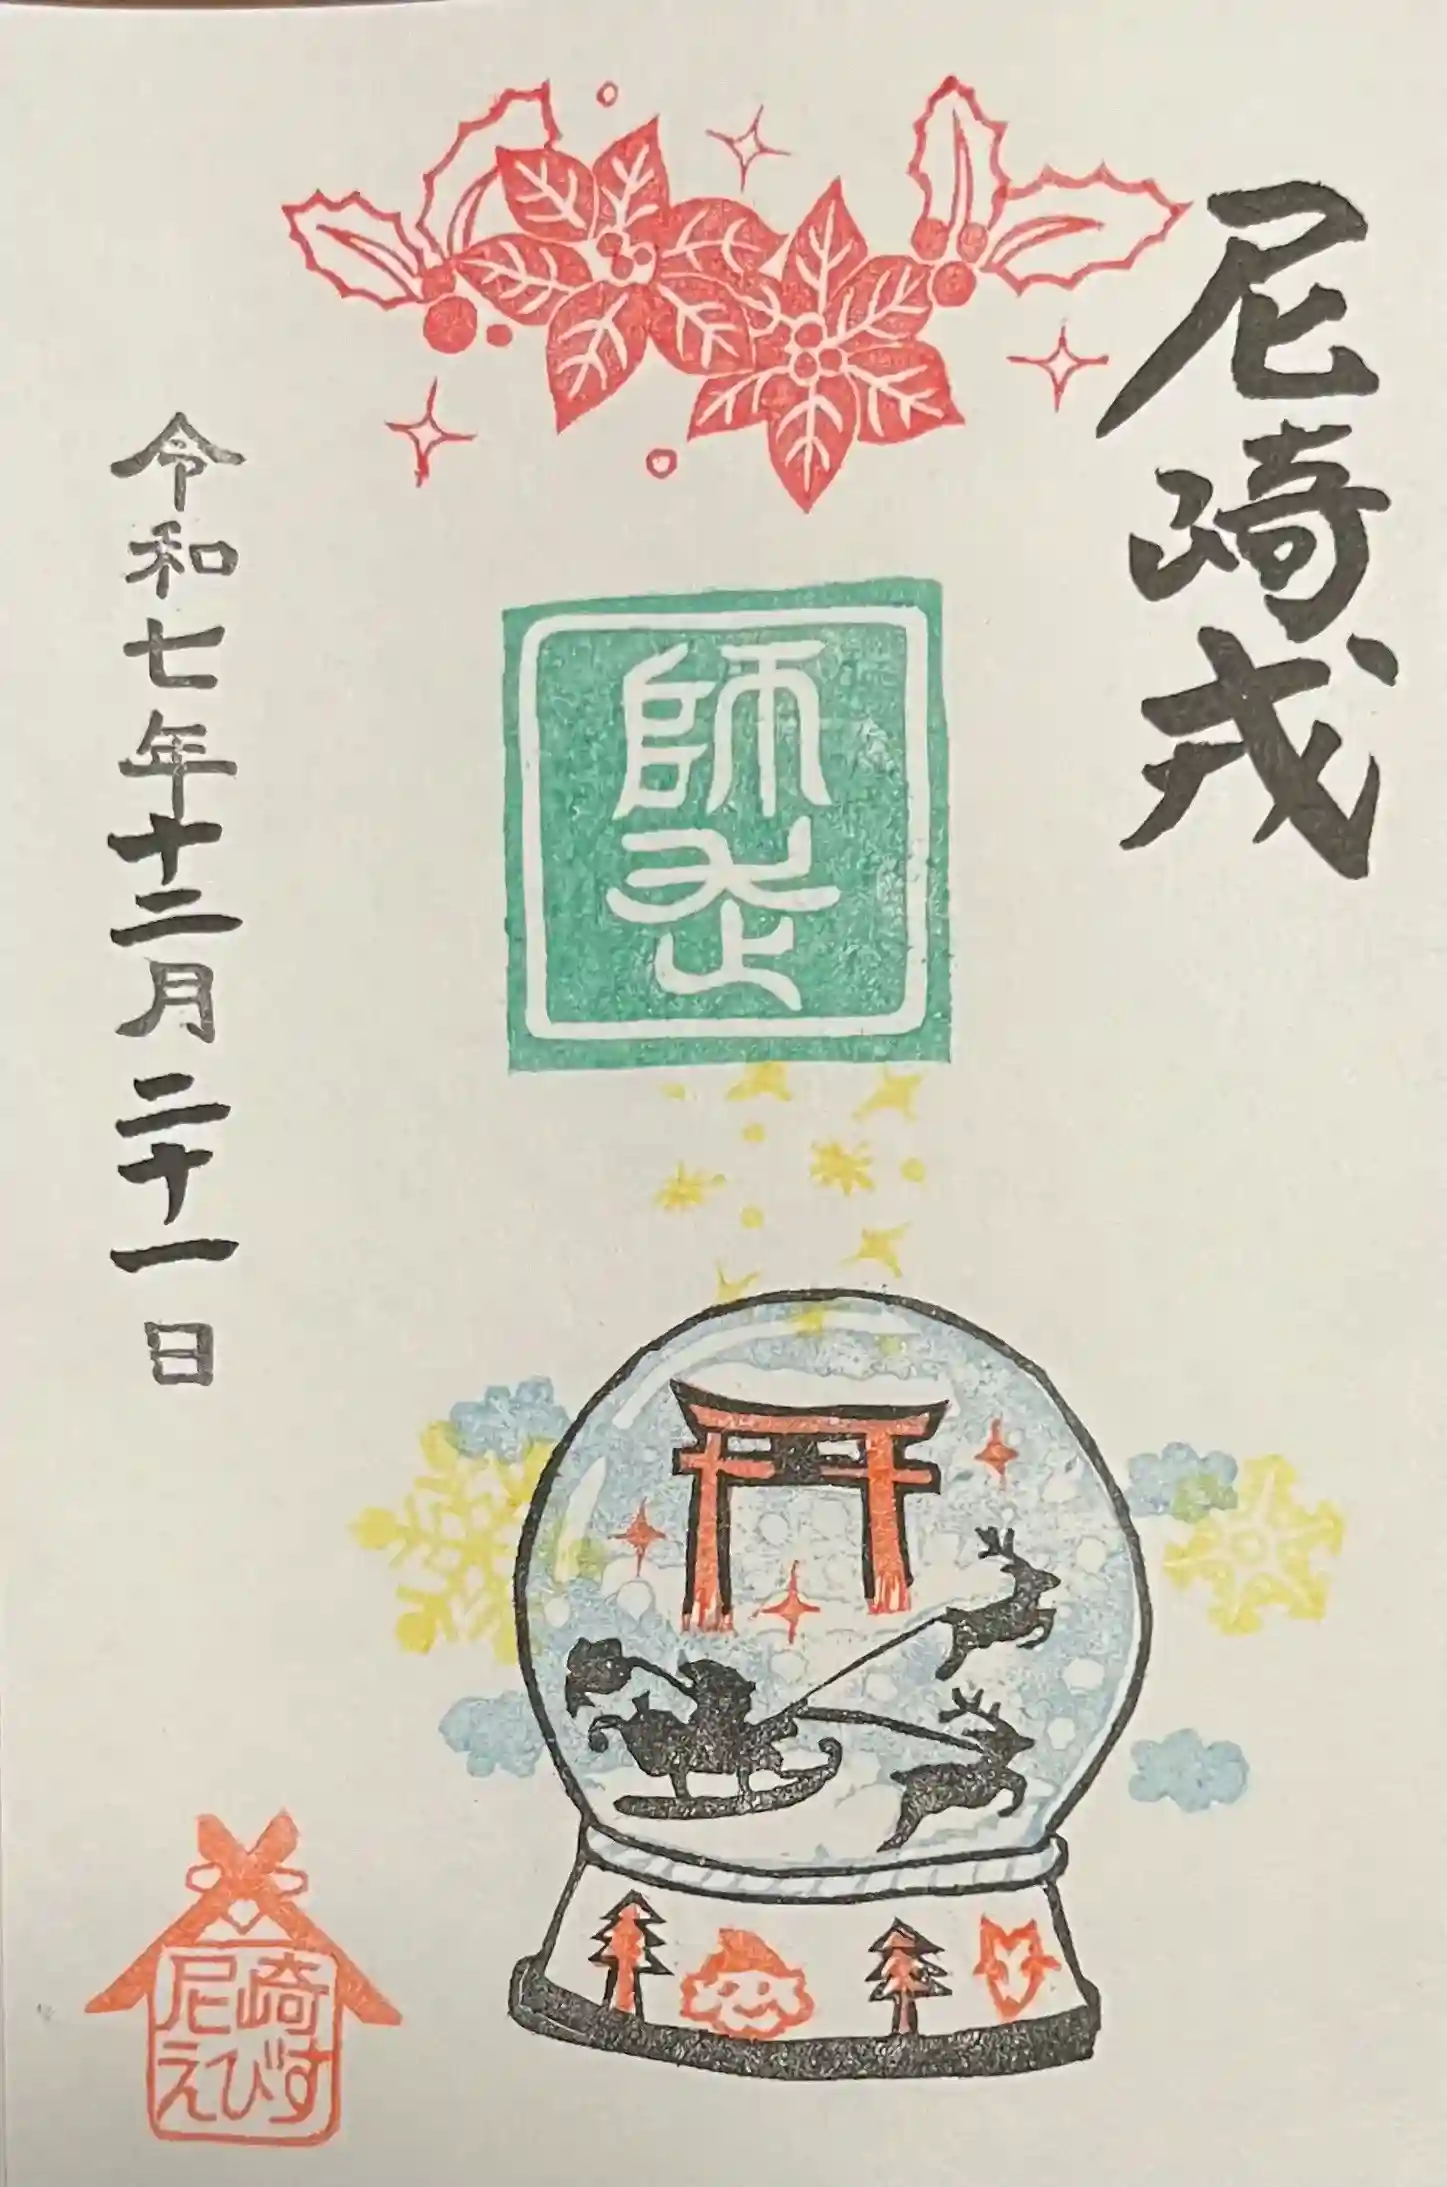 尼崎戎
師走
令和七年十二月二十一日
尼崎
えびす